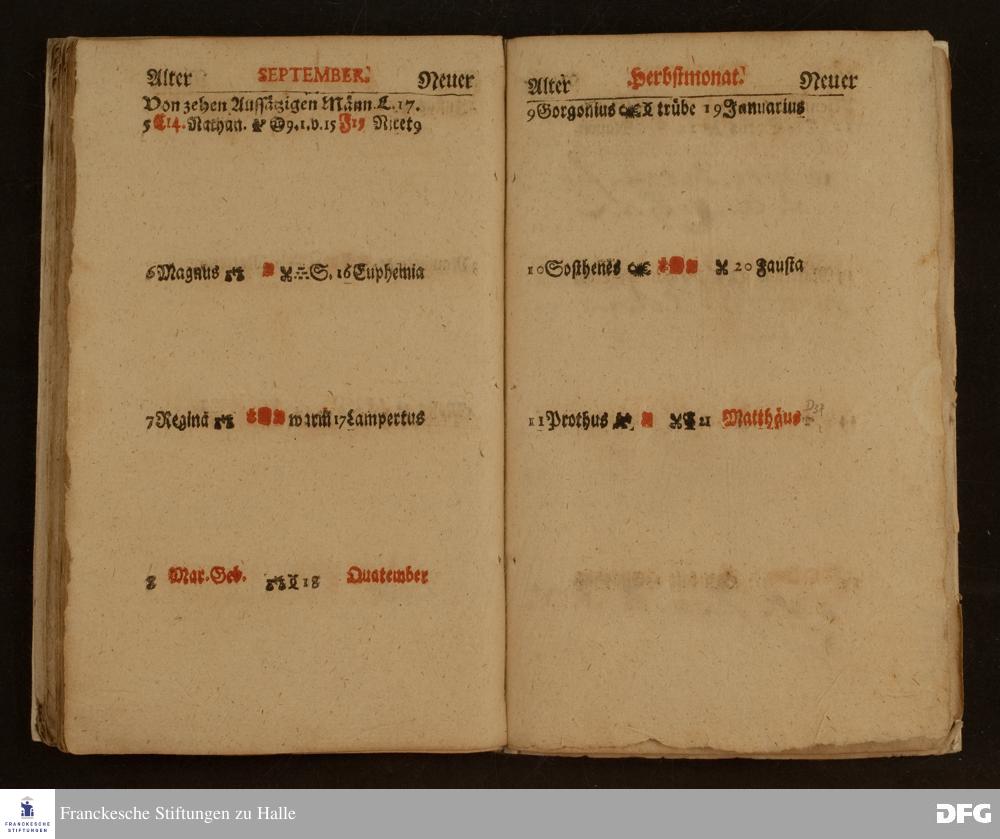 Alter SEPTEMBER. Neuer
Von zehen Aussätzigen Männ. L. 17.
5 E14. Nathan. 9. 1. v. 15 J15 Nicet9
6 Magnus S. 16 Euphemia
7 Regina warm 17 Lampertus
8 Mar. Geb. 18 Quatember
Alter Herbstmonat. Neuer
9 Gorgonius trübe 19 Januarius
10 Sosthenes 20 Fausta
11 Prothus 21 Matthäus
FRANCKESCHE STIFTUNGEN
Franckesche Stiftungen zu Halle
DFG